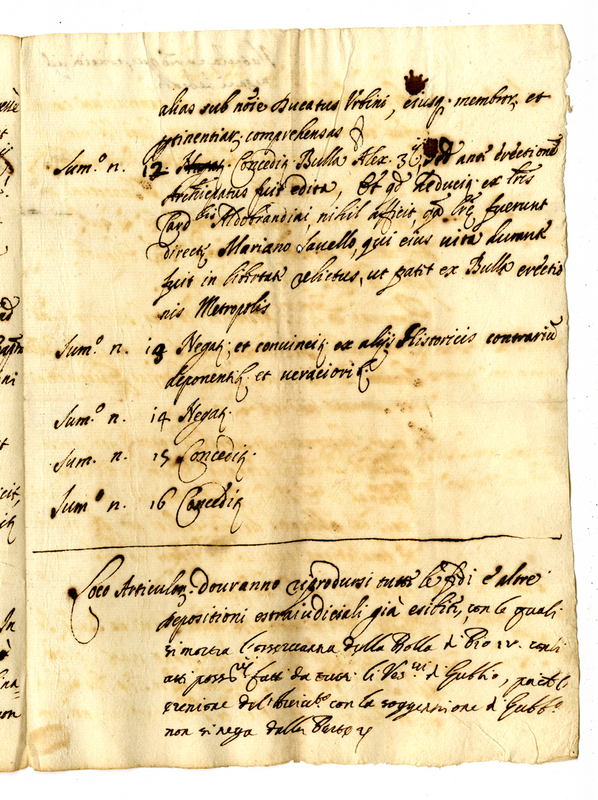 alias sub nõie Ducatus Urbini, eiusq. membror, et
ptinentiar, comprehensas
Sum.º n. 12 Concedit Bulla Alex. 3ij ante erectione
Archiepatus fuit edita, Et qd deducit ex lris
Card Aldobrandini, nihil afficit qa lre fuerunt
direct Mariano Sauello, qui eius uita durante
fuit in libertate relictus, ut patit ex Bulla erectio
nis Metropolis
Sum.º n. 13 Negat, et conuincit ex alijs Historicis contrariu
deponent, et ueraciori
Sum.º n. 14 Negat.
Sum. n. 15 Concedit.
Sum.º n. 16 Concedit
Loco Articulor. douranno riprodursi tutte le fedi è altre
depositioni estraiudiciali già esibite, con le quali
si mostra l'osseruanza della Bolla di Pio IV. con li
atti poss fatti da tutti li Ves.ui di Gubbio,
con la di Gubb.º
non si nega dalla Parte